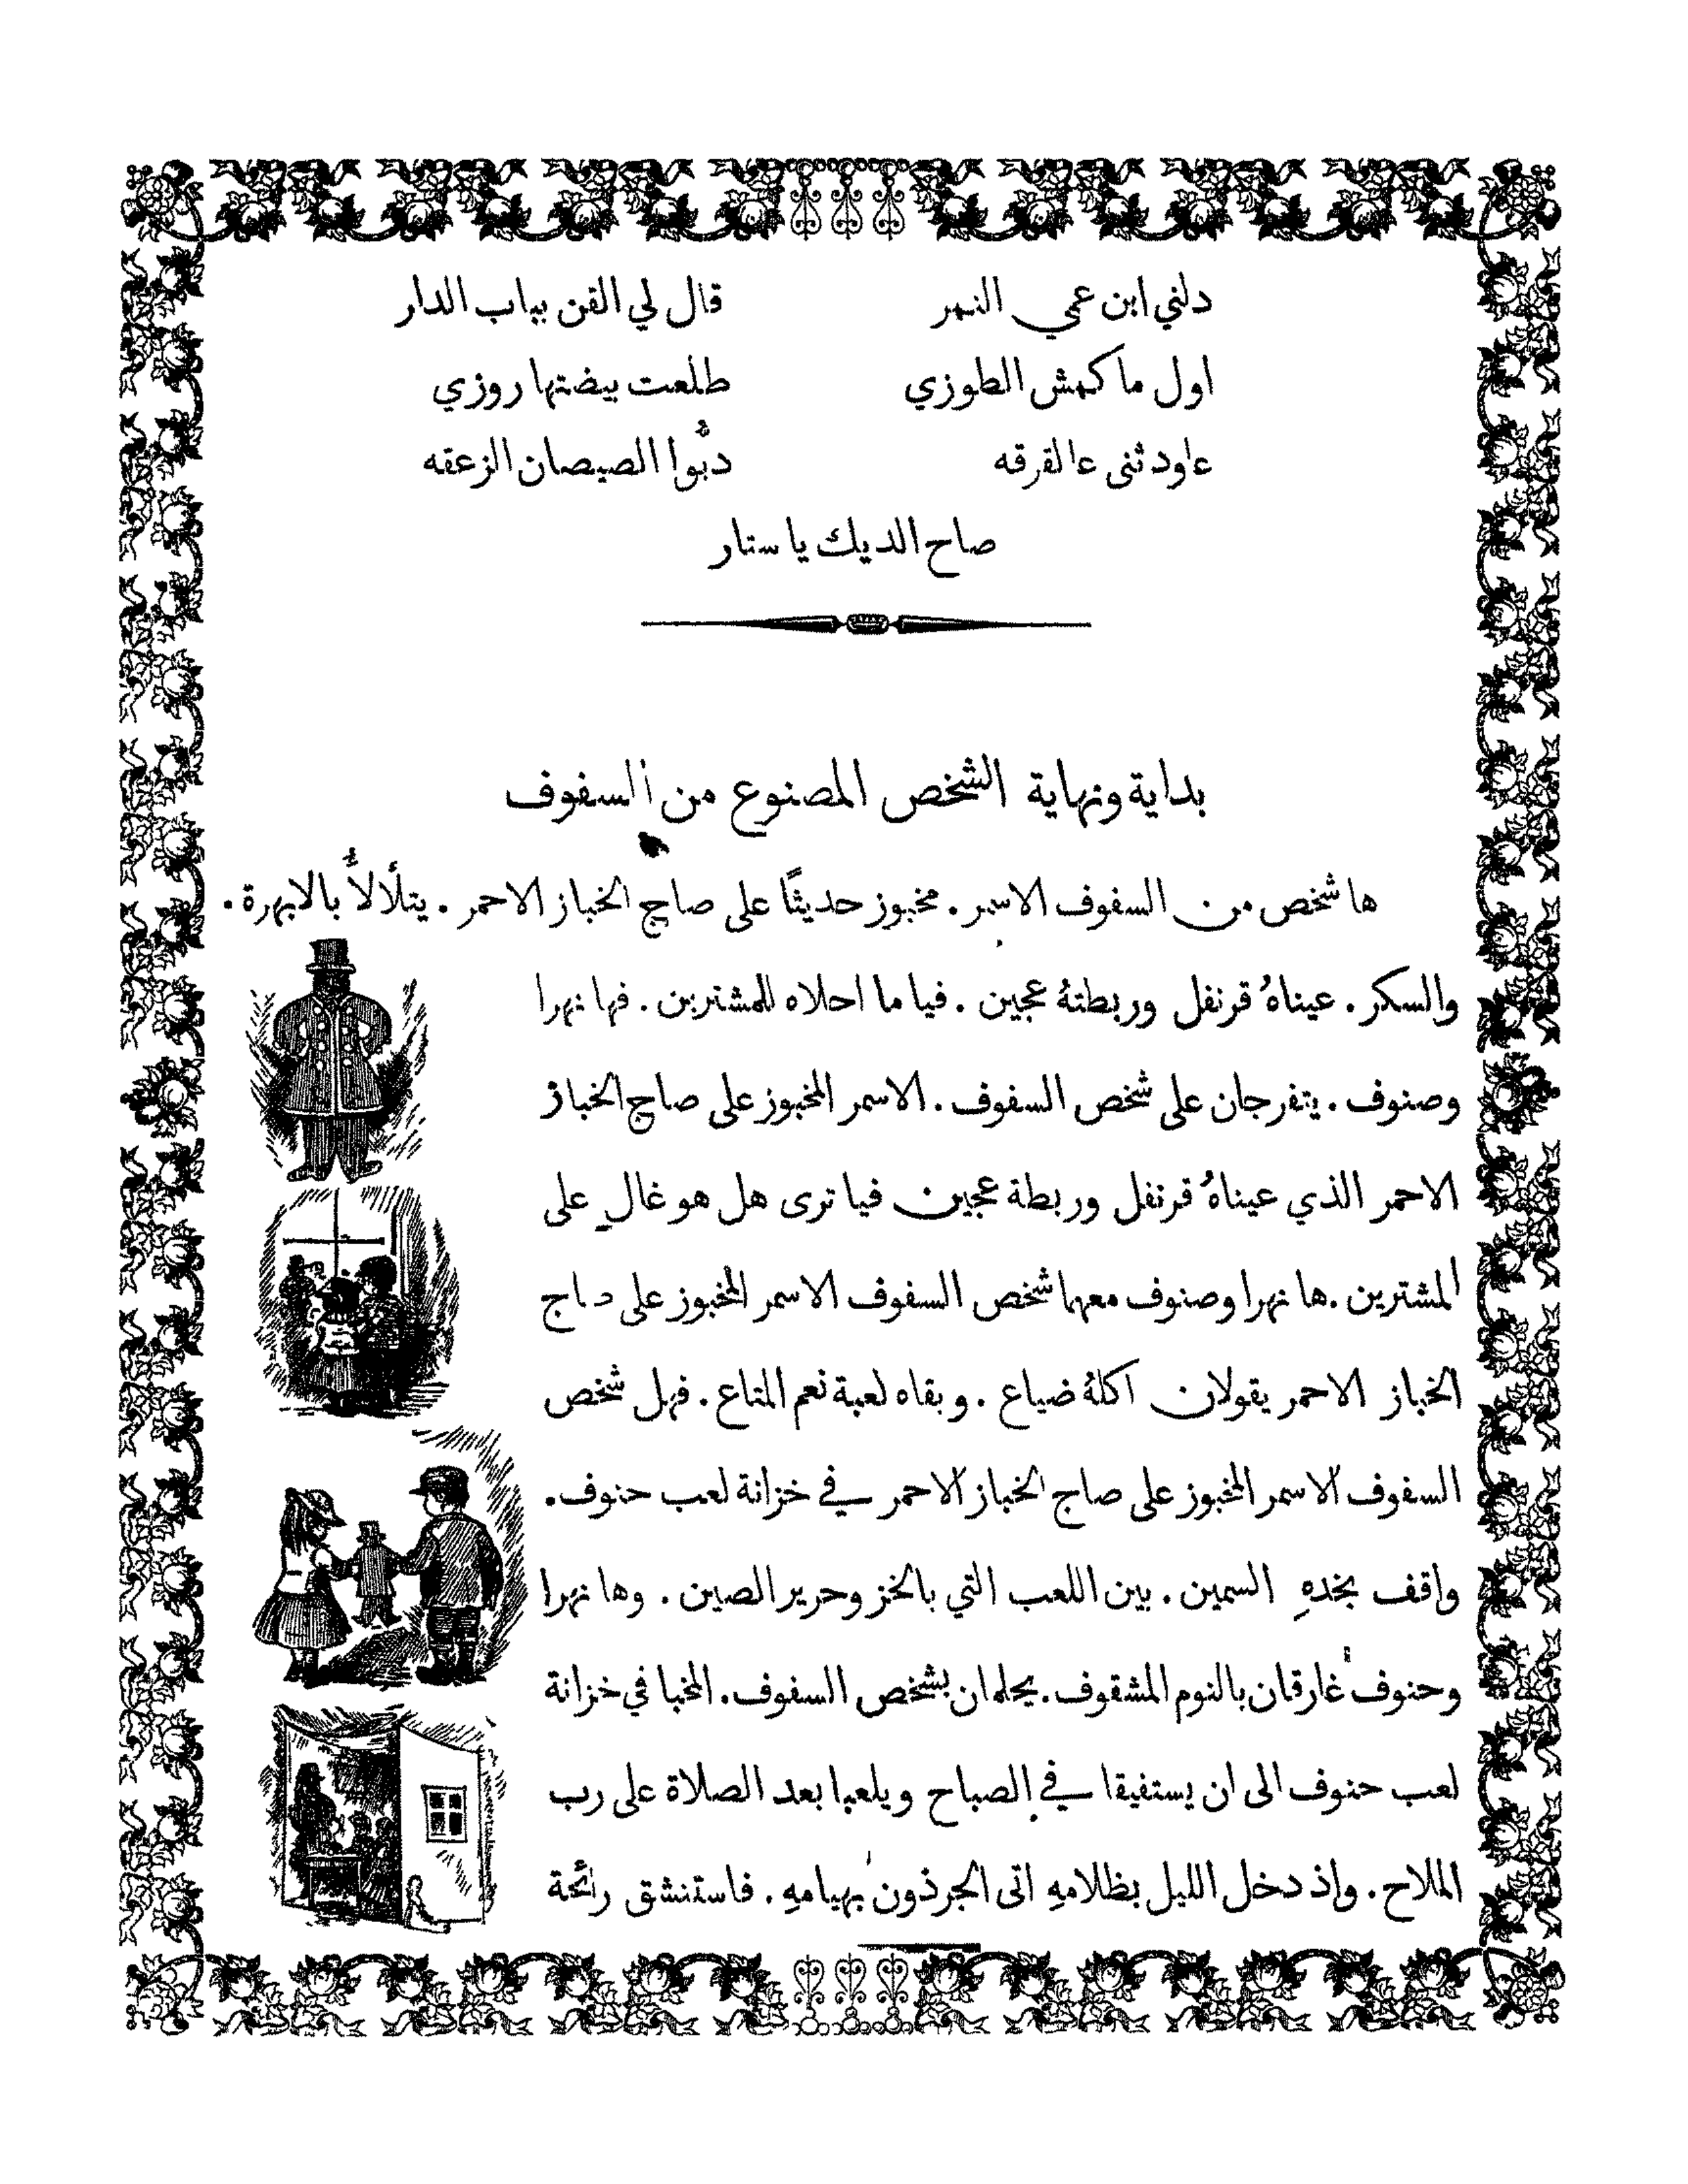 دلني ابن عمي النمر قال لي القن بباب الدار
اول ما كمش الطوزي طلعت بيضتها روزي
عاود ثنى عالقرقه دبُّوا الصيصان الزعقه
صاح الديك يا ستار
بداية ونهاية الشخص المصنوع من السفوف
ها شخص من السفوف الاسمر . مخبوز حديثًا على صاج الخباز الاحمر . يتلألأُ بالابهرة .
والسكر . عيناهُ قرنفل وربطتهُ عجين . فيا ما احلاه للمشترين . فها نهرا
وصنوف . يتفرجان على شخص السفوف . الاسمر المخبوز على صاج الخباز
الاحمر الذي عيناهُ قرنفل وربطة عجين فيا ترى هل هو غالٍ على
المشترين . ها نهرا وصنوف معهما شخص السفوف الاسمر المخبوز على صاج
الخباز الاحمر يقولان اكلهُ ضياع . وبقاه لعبة نعم المتاع . فهل شخص
السفوف الاسمر المخبوز على صاج الخباز الاحمر في خزانة لعب حنوف .
واقف بخدهِ السمين . بين اللعب التي بالخز وحرير الصين . وها نهرا
وحنوف غارقان بالنوم المشقوف . يحلمان بشخص السفوف . المخبا في خزانة
لعب حنوف الى ان يستفيقا في الصباح ويلعبا بعد الصلاة على رب
الملاح . واذ دخل الليل بظلامهِ اتى الجرذون بهيامهِ . فاستنشق رائحة